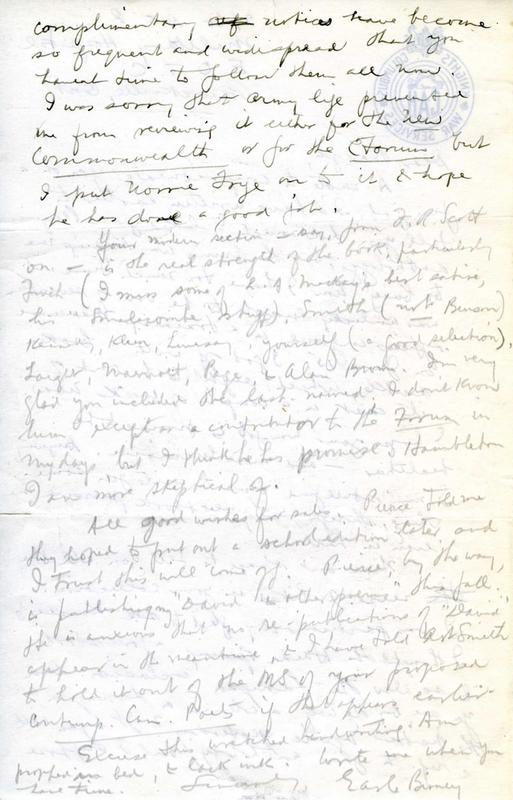 complimentary notices have become
so frequent and widespread that you
havent time to follow them all now.
I was sorry that army life prevented
me from reviewing it either for the New
Commonwealth or for the Forum but
I put Norrie Frye on to it & hope
he has done a good job.
Your modern section – say, from F. R. Scott
on –, is the real strength of the book, particularly
Finch (I miss some of L. A. Mackay's best satire,
his Smalacombe stuff), Smith (not Benson)
Kennedy, Klein, Livesay, yourself (a good selection),
Marriott, Page, & Alan Brown. I'm very
glad you included the last named; I dont know
him except as a contributor to the Forum in
my days but I think he has promise. Hambleton
I am more skeptical of.
All good wishes for sales. Pierce told me
they hoped to put out a school edition later, and
I trust this will come off. Pierce, by the way,
is publishing my "David & other poems" this fall.
He is anxious that no re-publications of "David"
appear in the meantime, & I have told Art Smith
to hold it out of the MS of your proposed
contemp. Can. Poets if that appears earlier.
Excuse this wretched handwriting. Am
propped in bed, & lack ink. Write me when you
have time. Sincerely, Earle Birney